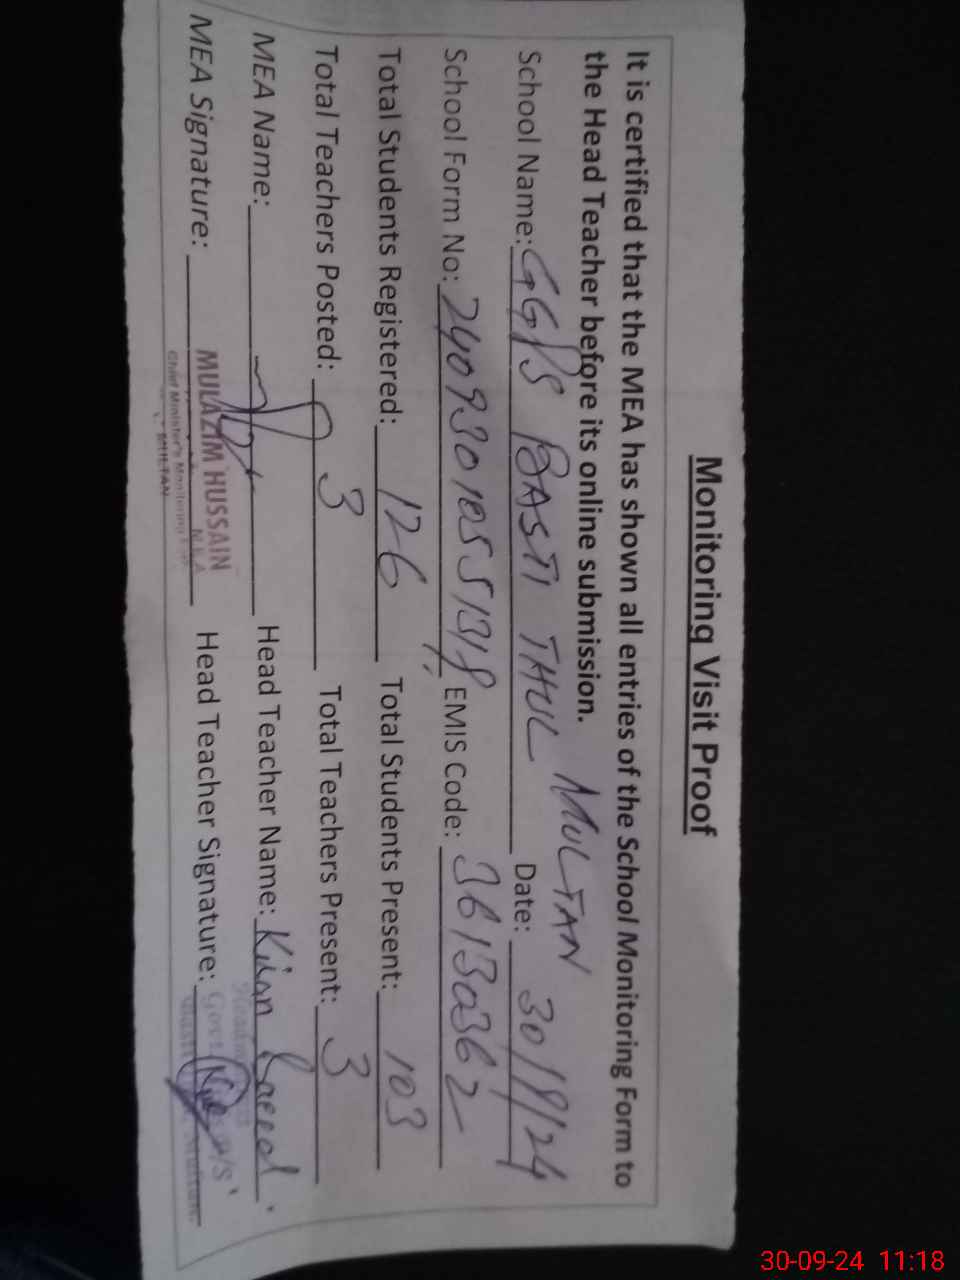 Monitoring Visit Proof
It is certified that the MEA has shown all entries of the School Monitoring Form to
the Head Teacher before its online submission.
School Name: GGPS BASTI THUL MULTAN Date: 30/9/24
School Form No: EMIS Code: 36130362
Total Students Registered: 126 Total Students Present: 103
Total Teachers Posted: 3 Total Teachers Present: 3
MEA Name: Head Teacher Name: Kiran Saeed
MEA Signature: MULAZIM HUSSAIN Head Teacher Signature:
M.E.A
Chief Minister's Monitoring
MULTAN
30-09-24 11:18